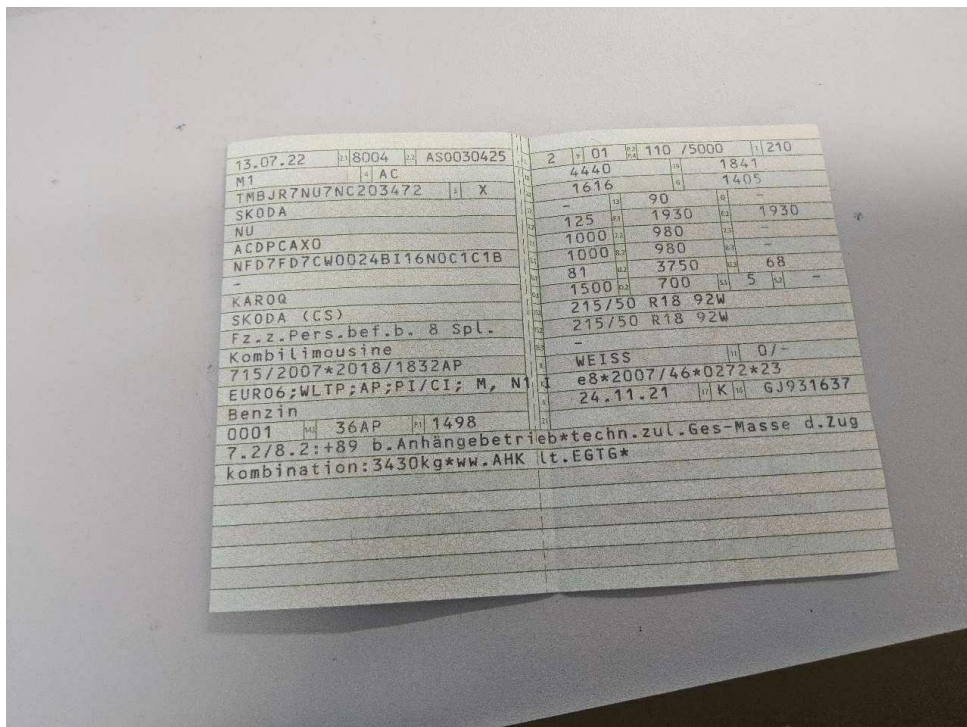 13.07.22 2.1 8004 2.2 AS0030425
M1 4 AC
TMBJR7NU7NC203472 3 X
SKODA
NU
ACDPCAX0
NFD7FD7CW0024BI16N0C1C1B
-
KAROQ
SKODA (CS)
Fz.z.Pers.bef.b. 8 Spl.
Kombilimousine
715/2007*2018/1832AP
EURO6;WLTP;AP;PI/CI; M, N1 I
Benzin
0001 14.1 36AP P.1 1498
2 9 01 P.2 P.4 110 /5000 T 210
4440 1841
1616 G 1405
- 13 90 -
125 F.1 1930 F.2 1930
1000 7.2 980 7.3 -
1000 8.2 980 8.3 -
81 U.2 3750 U.3 68
1500 O.2 700 S.1 5 S.2 -
215/50 R18 92W
215/50 R18 92W
-
WEISS 11 0/-
e8*2007/46*0272*23
24.11.21 17 K 16 GJ931637
7.2/8.2:+89 b.Anhängebetrieb*techn.zul.Ges-Masse d.Zug
kombination:3430kg*ww.AHK lt.EGTG*